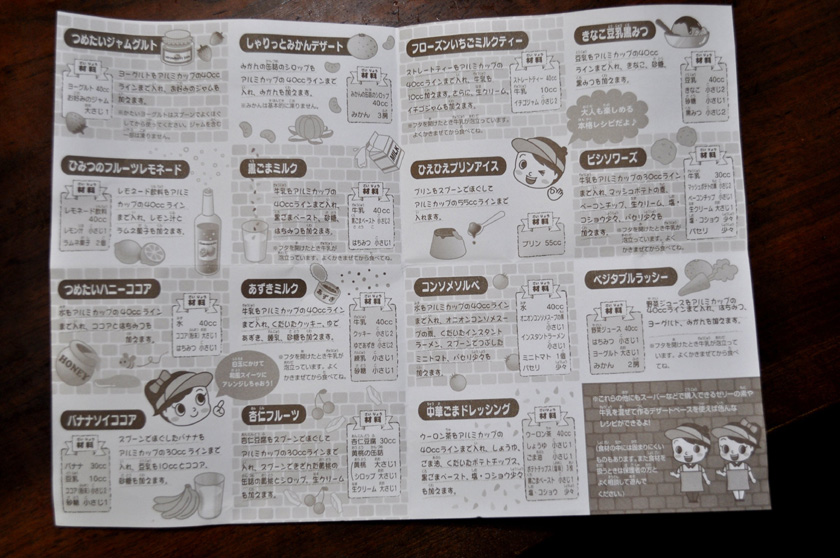 つめたいジャムグルト
材料
ヨーグルト 40cc
お好みのジャム
大さじ1
ヨーグルトをアルミカップの40cc
ラインまで入れ、お好みのジャムを
加えます。
しゃりっとみかんデザート
みかんの缶詰のシロップを
アルミカップの40ccラインまで
入れ、みかんも加えます。
※みかんは基本的に凍りません。
材料
みかんの缶詰のシロップ
40cc
みかん 3房
フローズンいちごミルクティー
ストレートティーをアルミカップの
40ccラインまで入れ、牛乳を
10cc加えます。さらに、生クリーム、
イチゴジャムも加えます。
※フタを開けたとき牛乳が泡立っています。
よくかきまぜてから食べてね。
材料
ストレートティー 40cc
牛乳 10cc
イチゴジャム 小さじ2
きなこ豆乳黒みつ
豆乳をアルミカップの40cc
ラインまで入れ、きなこ、砂糖、
黒みつを加えます。
大人も楽しめる
本格レシピだよ♪
材料
豆乳 40cc
きなこ 小さじ2
砂糖 小さじ2
黒みつ 小さじ2
ひみつのフルーツレモネード
材料
レモネード飲料
40cc
レモン汁 小さじ1
ラムネ菓子 2個
レモネード飲料をアルミ
カップの40ccライン
まで入れ、レモン汁と
ラムネ菓子を加えます。
黒ごまミルク
牛乳をアルミカップの
40ccラインまで入れ、
黒ごまペースト、砂糖、
はちみつを加えます。
※フタを開けたとき牛乳が
泡立っています。よくかきまぜてから食べてね。
材料
牛乳 40cc
黒ごまペースト 小さじ1
砂糖 小さじ1
はちみつ 小さじ1
ひえひえプリンアイス
プリンをスプーンでほぐして
アルミカップの55ccラインまで
入れます。
材料
プリン 55cc
ビシソワーズ
牛乳をアルミカップの30ccライン
まで入れ、マッシュポテトの素、
ベーコンチップ、生クリーム、塩・
コショウ少々、パセリ少々を
加えます。
※フタを開けたとき牛乳が
泡立っています。よく
かきまぜてから食べてね。
材料
牛乳 30cc
マッシュポテトの素 小さじ2
ベーコンチップ 小さじ1
生クリーム 大さじ1
塩・コショウ 少々
パセリ 少々
つめたいハニーココア
水をアルミカップの40ccライン
まで入れ、ココアとはちみつを
加えます。
HONEY
材料
水 40cc
はちみつ 小さじ1
あずきミルク
牛乳をアルミカップの40ccライン
まで入れ、くだいたクッキー、ゆで
あずき、練乳、砂糖も加えます。
※フタを開けたとき牛乳が
泡立っています。よく
かきまぜてから食べてね。
材料
牛乳 40cc
クッキー 小さじ2
ゆであずき 小さじ2
練乳 小さじ1
砂糖 小さじ1
コンソメソルベ
水をアルミカップの40ccライン
まで入れ、オニオンコンソメスー
プの素、くだいたインスタント
ラーメン、スプーンでつぶした
ミニトマト、パセリ少々を
加えます。
材料
水 40cc
オニオンコンソメスープの素
小さじ1
インスタントラーメン
小さじ1
ミニトマト 1個
パセリ 少々
ベジタブルラッシー
材料
野菜ジュース 40cc
はちみつ 小さじ1
ヨーグルト 大さじ1
みかん 2房
野菜ジュースをアルミカップの
40ccラインまで入れ、はちみつ、
ヨーグルト、みかんを加えます。
バナナソイココア
材料
バナナ 30cc
豆乳 10cc
砂糖 小さじ1
スプーンでほぐしたバナナを
アルミカップの30ccラインまで
入れ、豆乳を10ccとココア、
砂糖を加えます。
目玉にかけて
和風スイーツに
アレンジしちゃおう!
杏仁フルーツ
杏仁豆腐をスプーンでほぐして
アルミカップの30ccラインまで
入れます。スプーンできざんだ黄桃の
缶詰の黄桃とシロップ、生クリーム
を加えます。
材料
杏仁豆腐 30cc
黄桃の缶詰
(黄桃 大さじ1
シロップ 大さじ1)
生クリーム 大さじ1
中華ごまドレッシング
ウーロン茶をアルミカップの
40ccラインまで入れ、しょうゆ、
ごま油、くだいたポテトチップス、
黒ごまペースト、塩・コショウ少々
を加えます。
材料
ウーロン茶 40cc
しょうゆ 小さじ1
ごま油 小さじ1
黒ごまペースト 小さじ1
塩・コショウ 少々
※これらの他にもスーパーなどで購入できるゼリーの素や
牛乳を混ぜて作るデザートベースを使えば色んな
レシピができるよ!
食材の中には固まりにくい
ものもあります。また食材を
扱うときは保護者の方と
よく相談して選んで
ください。